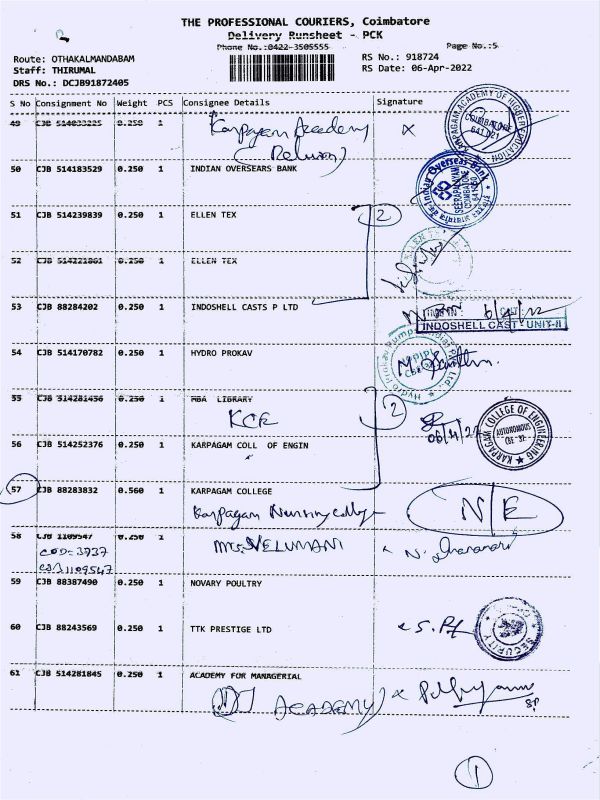 THE PROFESSIONAL COURIERS, Coimbatore
Delivery Runsheet - PCK
Phone No.:0422-3505555
Page No.:5
Route: OTHAKALMANDABAM
Staff: THIRUMAL
DRS No.: DCJB91872405
RS No.: 918724
RS Date: 06-Apr-2022
S No Consignment No Weight PCS Consignee Details Signature
49 CJB 0.250 1
Karpagam Academy
(Return)
KARPAGAM ACADEMY OF HIGHER EDUCATION
COIMBATORE
641 021
50 CJB 514183529 0.250 1 INDIAN OVERSEARS BANK
Indian Overseas Bank
COIMBATORE
51 CJB 514239839 0.250 1 ELLEN TEX
2
52 CJB 514221861 0.250 1 ELLEN TEX
53 CJB 88284202 0.250 1 INDOSHELL CASTS P LTD
6/4/22
INDOSHELL CAST UNIT-II
54 CJB 514170782 0.250 1 HYDRO PROKAV
55 CJB 514281456 0.250 1 MBA LIBRARY
KCE
2
06/4/22
KARPAGAM COLLEGE OF ENGINEERING
AUTONOMOUS
CBE - 32
56 CJB 514252376 0.250 1 KARPAGAM COLL OF ENGIN
57 CJB 88283832 0.560 1 KARPAGAM COLLEGE
Karpagam Nursing College
N/E
58 CJB 1109547 0.250 1
COD: 3737
CJB 1109547
Mrs. VELUMANI
59 CJB 88387490 0.250 1 NOVARY POULTRY
60 CJB 88243569 0.250 1 TTK PRESTIGE LTD
SECURITY
61 CJB 514281845 0.250 1 ACADEMY FOR MANAGERIAL
ACADEMY
1